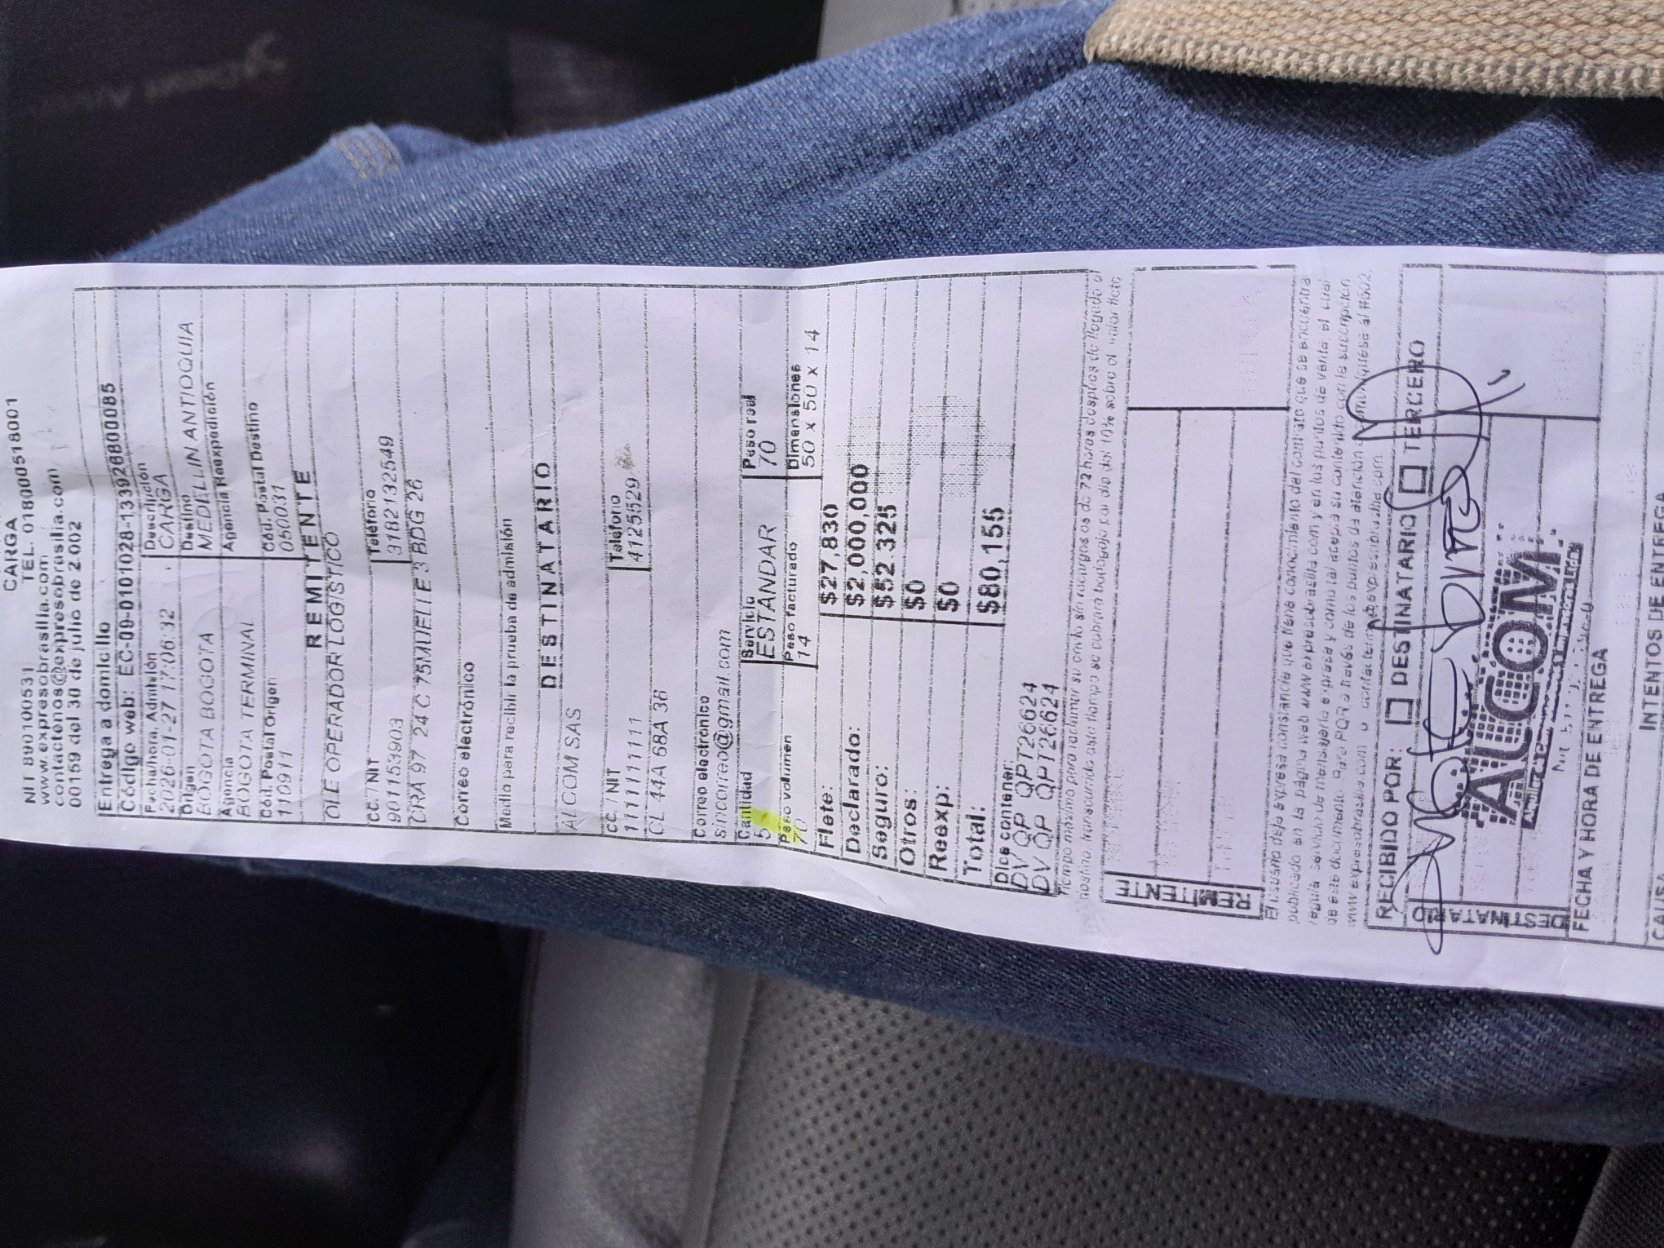 CARGA
NIT 890100531 TEL. 018000518001
www.expresobrasilia.com
contactenos@expresobrasilia.com
00169 del 30 de julio de 2.002
Entrega a domicilio
Código web: EC-09-0101028-1339268800085
Fecha/hora, Admisión Descripción
2026-01-27 17:06:32 CARGA
Origen Destino
BOGOTA BOGOTA MEDELLIN ANTIOQUIA
Agencia Agencia Reexpedición
BOGOTA TERMINAL
Cód. Postal Origen Cód. Postal Destino
110911 050031
REMITENTE
OLE OPERADOR LOGISTICO
CC./NIT Teléfono
901153903 3182132549
CRA 97 24 C 75MUELLE 3 BDG 26
Correo electrónico
Medio para recibir la prueba de admisión
DESTINATARIO
ALCOM SAS
CC. / NIT Teléfono
1111111111 4125529
CL 44A 68A 36
Correo electrónico
sincorreo@gmail.com
Cantidad Servicio Peso real
5 ESTANDAR 70
Peso volumen Peso facturado Dimensiones
70 14 50 x 50 x 14
Flete: $27,830
Declarado: $2,000,000
Seguro: $52,325
Otros: $0
Reexp: $0
Total: $80,155
Dice contener:
DV QP QPT26624
DV QP QPT26624
Tiempo máximo para reclamar su envío sin recargos es de 72 horas después de llegada al
destino, transcurrido este tiempo se cobrará bodegaje por día del 10% sobre el valor flete
REMITENTE
El usuario deja expresa constancia que tiene conocimiento del contrato que se encuentra
publicado en la página web www.expresobrasilia.com y en los puntos de venta, el cual
regula servicio de mensajería expresa y como tal acepta su contenido con la suscripción
de este documento. Para PQR a través de los puntos de atención
www.expresobrasilia.com o #602.
RECIBIDO POR: DESTINATARIO TERCERO
DESTINATARIO
ALCOM
FECHA Y HORA DE ENTREGA
INTENTOS DE ENTREGA
CAUSA